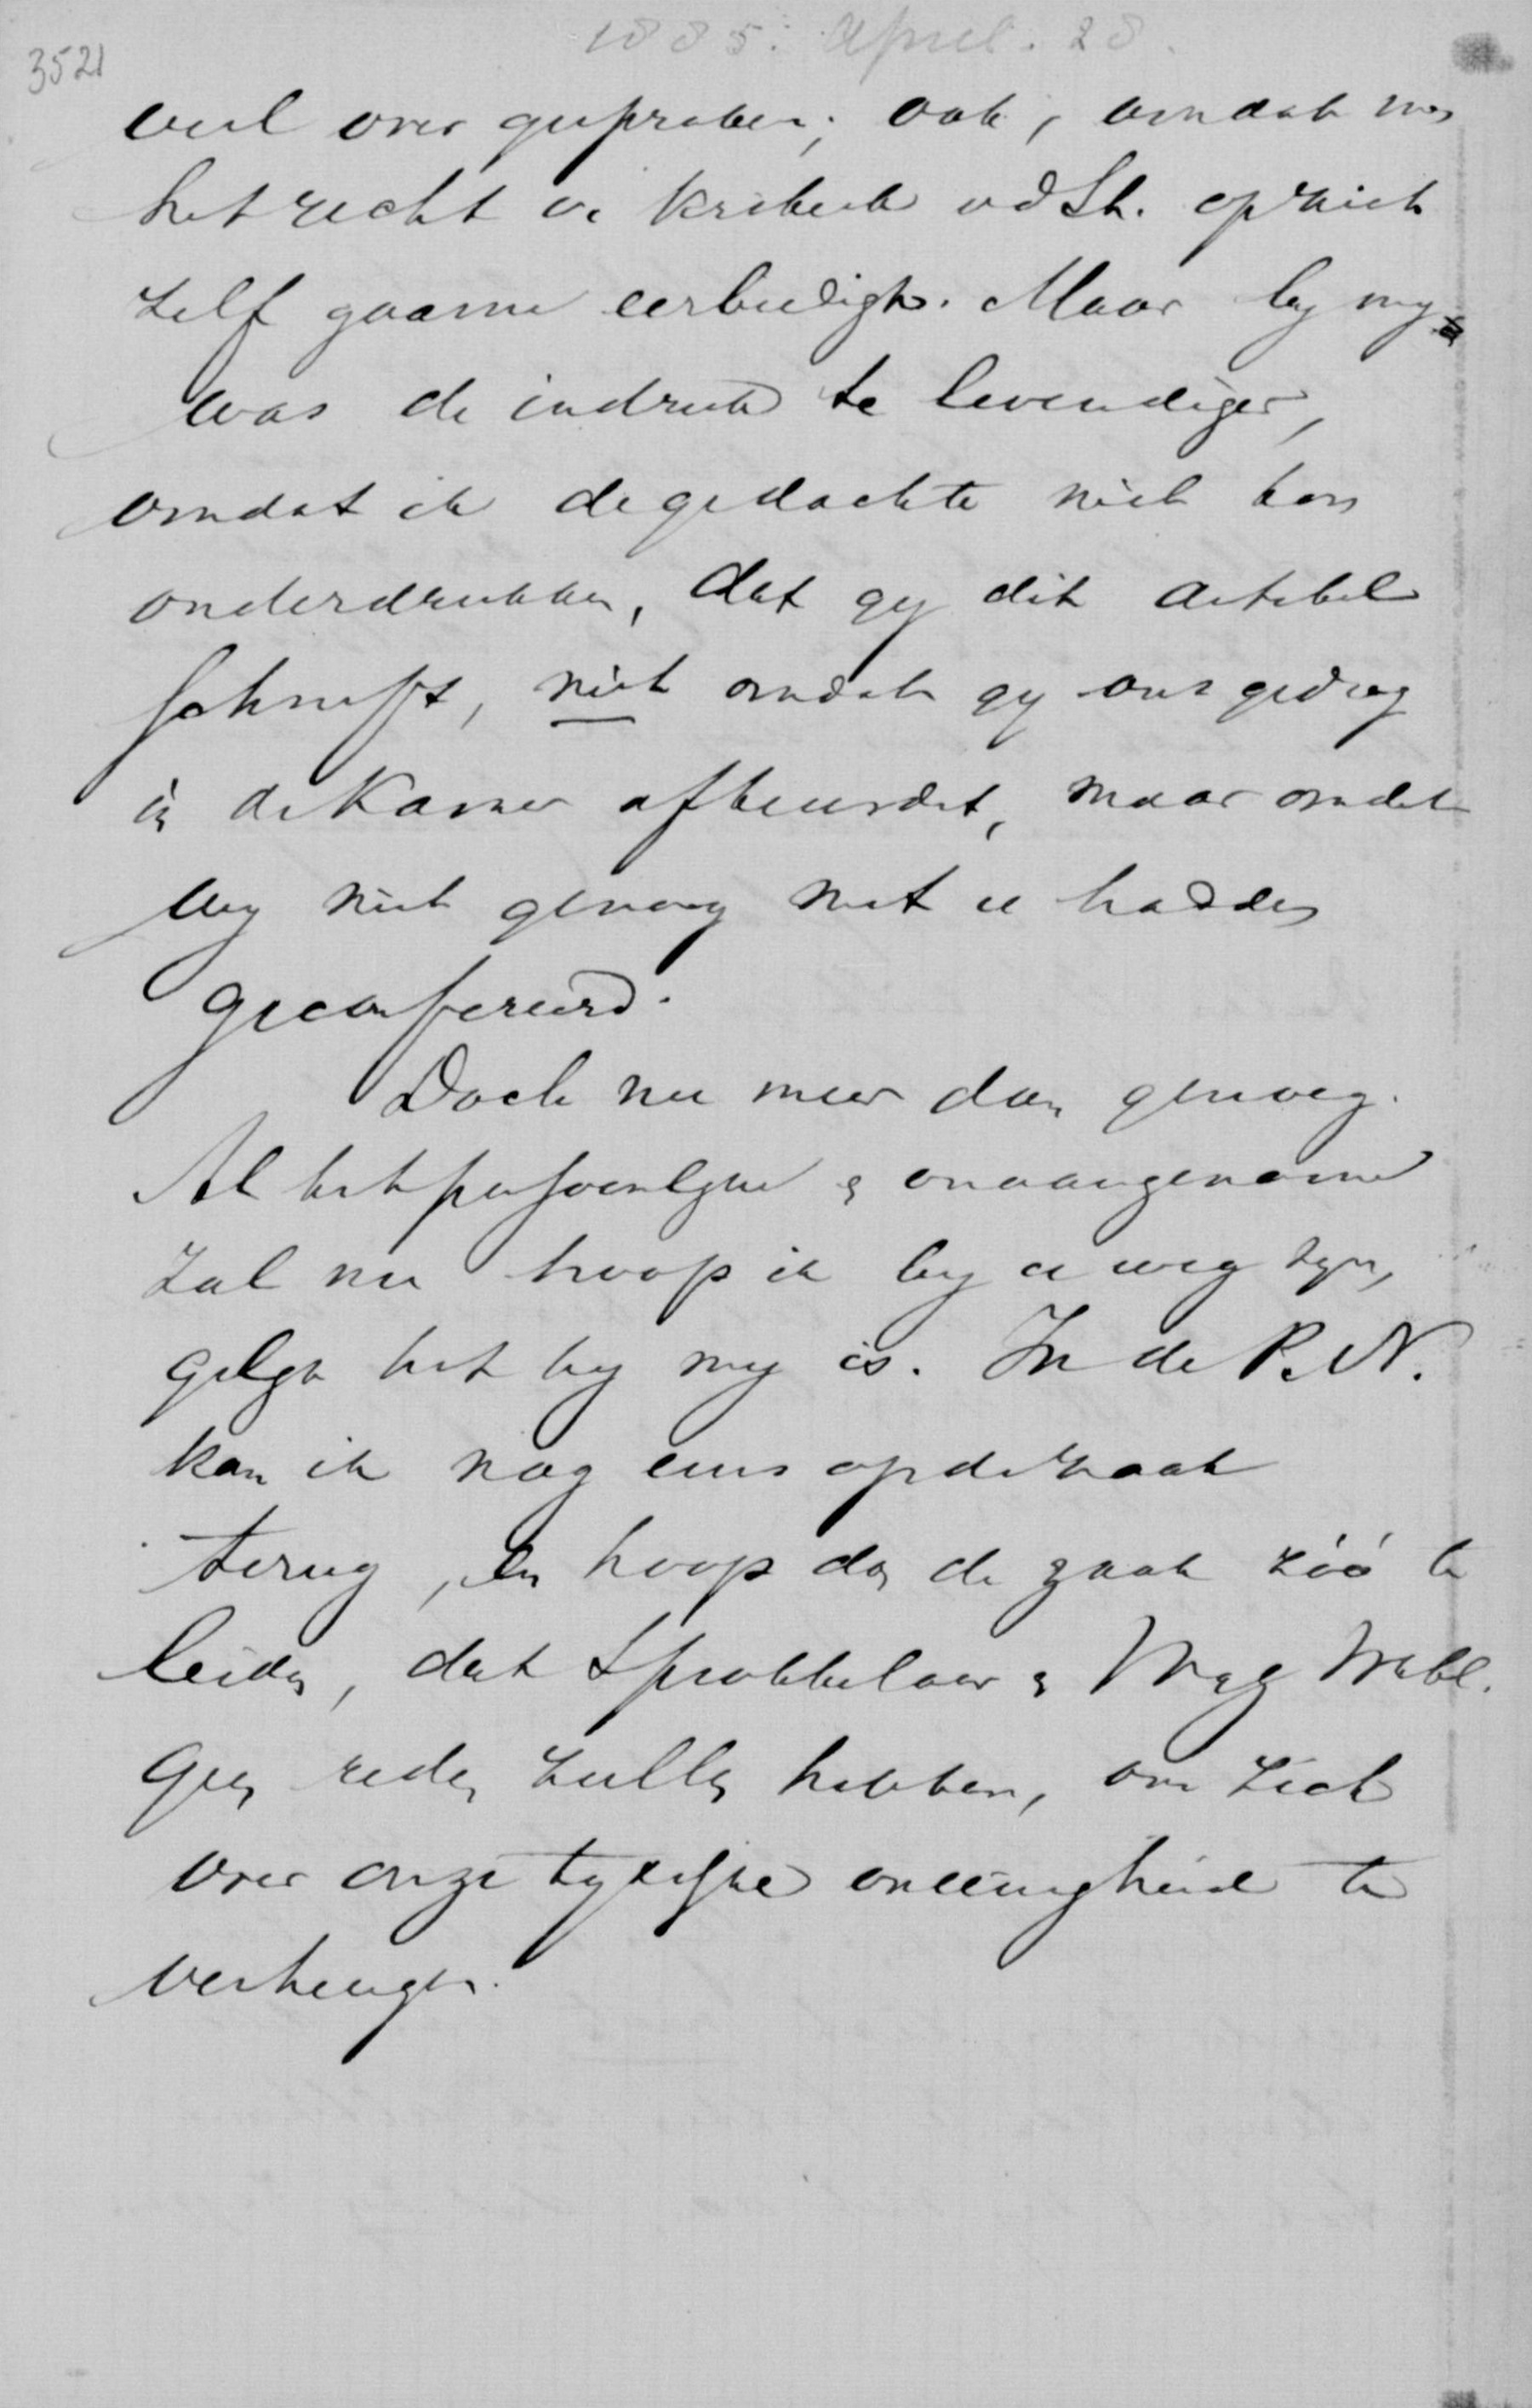 3521
1885. April. 28.
veel over gesproken; ook, omdat men
het recht v. kritiek vd St. op zich
zelf gaarne eerbiedigt. Maar by my
was de indruk te levendiger,
omdat ik de gedachte niet kon
onderdrukken, dat gy dit artikel
schreeft, niet omdat gy ons gedrag
in de Kamer afkeurdet, maar omdat
wy niet genoeg met u hadden
geconfereerd.
Doch nu meer dan genoeg.
Al het persoonlyke & onaangename
zal nu hoop ik by u weg zyn,
gelyk het by my is. In de R.N.
kom ik nog eens op de zaak
terug, en hoop dan de zaak zóó te
leiden, dat Sprokkelaar &
geen reden zullen hebben, om zich
over onze tydelyke oneenigheid te
verheugen.